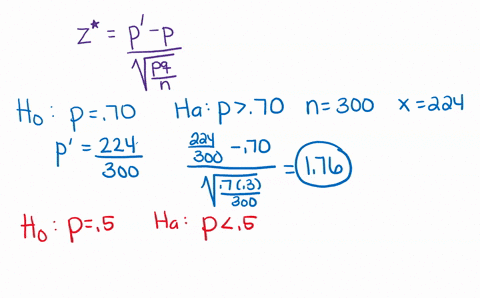 z* = p' - p / √(pq/n)
H₀: p = .70 Ha: p > .70 n = 300 x = 224
p' = 224/300 (224/300 - .70) / √(.7(.3)/300) = 1.76
H₀: p = .5 Ha: p < .5